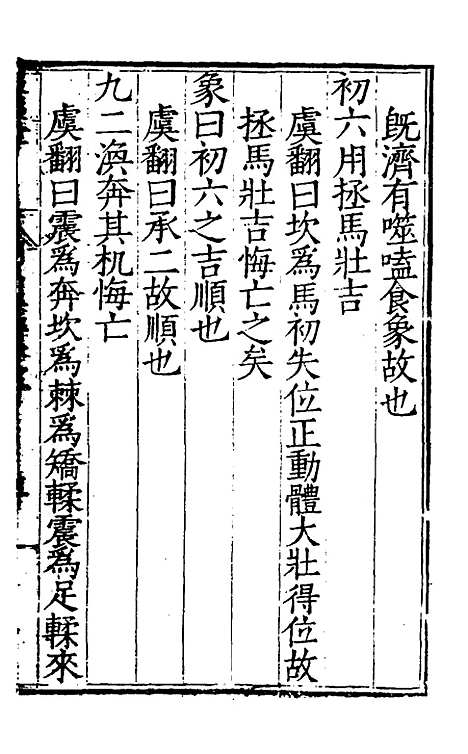 既濟有噬嗑食象故也
初六用拯馬壯吉
虞翻曰坎為馬初失位正動體大壯得位故
拯馬壯吉悔亡之矣
象曰初六之吉順也
虞翻曰承二故順也
九二渙奔其机悔亡
虞翻曰震為奔坎為棘為矯輮震為足輮來